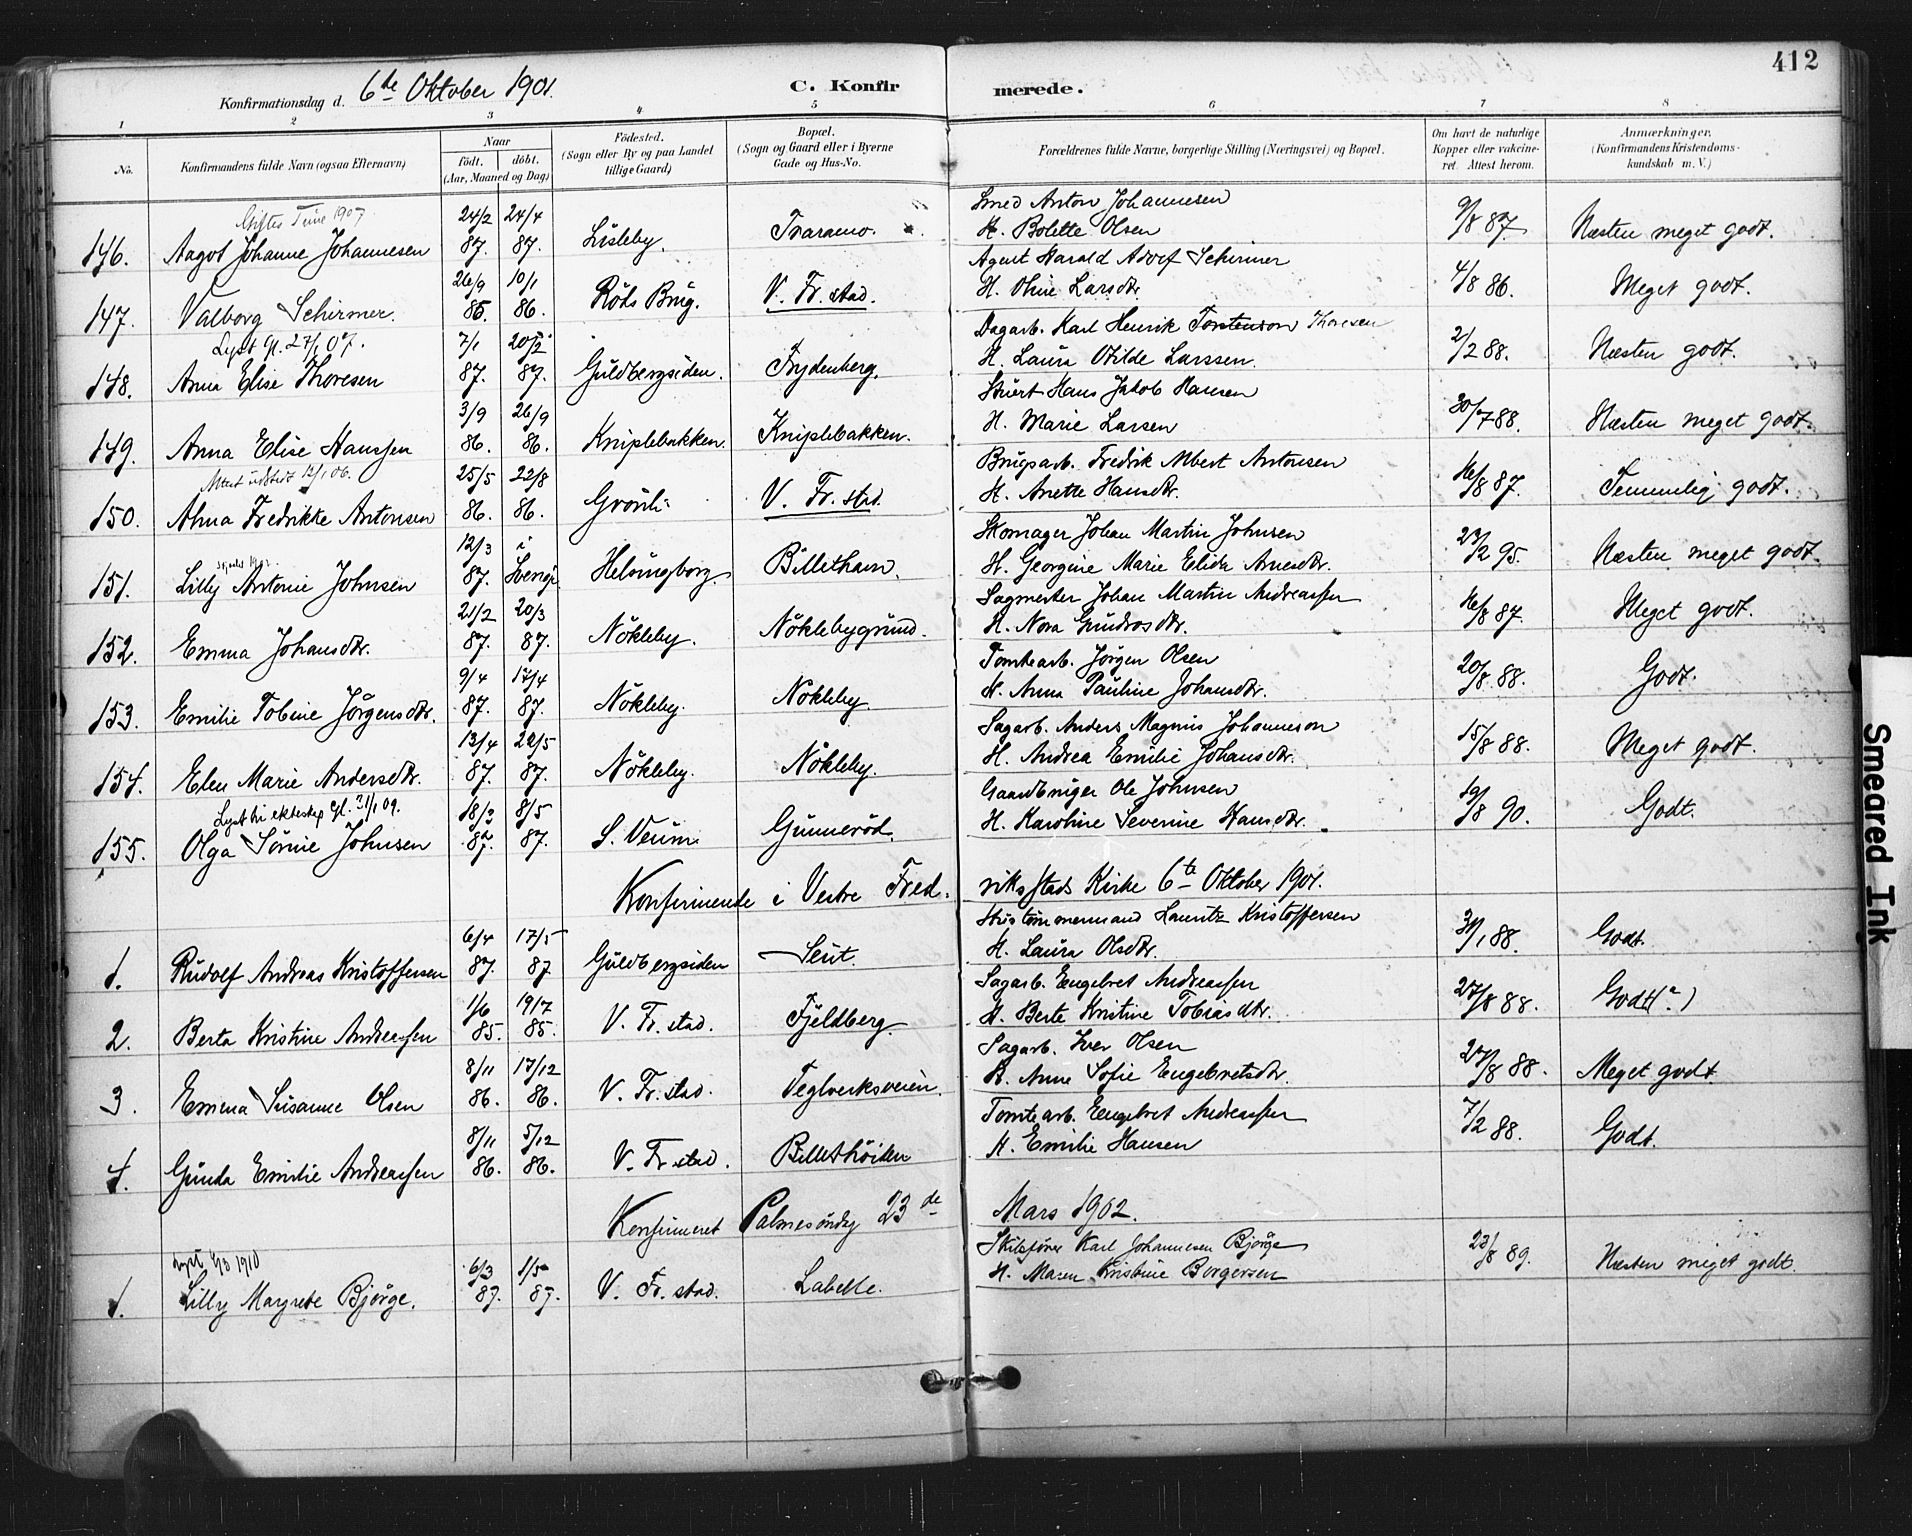 412
Konfirmationsdag d. 6te Oktober 1901. C. Konfirmerede.
1 2 3 4 5 6 7 8
No. Konfirmandens fulde Navn (ogsaa Efternavn) Naar født. døbt. (Aar, Maaned og Dag) Fødested. (Sogn eller By og paa Landet tillige Gaard) Bopæl. (Sogn og Gaard eller i Byerne Gade og Hus-No. Forældrenes fulde Navne, borgerlige Stilling (Næringsvei) og Bopæl. Om havt de naturlige Kopper eller vakcineret. Attest herom. Anmærkninger. (Konfirmandens Kristendomskundskab m. V.)
Giftes Tune 1907 24/2 24/4 Smed Anton Johannesen
146. Aagot Johanne Johannesen 87. 87. Lisleby. Traramo. H. Bolette Olsen 9/8 87. Næsten meget godt.
26/9 10/1 Agent Harald Adolf Schirmer
147. Valborg Schirmer. 85. 86. Röds Brug. V. Fr.stad. H. Oline Larsdtr. 4/8 86. Meget godt.
Lyst Gl. 27/1 07. 7/1 20/2 Dagarb. Karl Henrik Torstenson Thoresen
148. Anna Elise Thoresen 87. 87. Guldbergsiden. Frydenberg. H. Laura Otilde Larssen. 2/2 88. Næsten godt.
3/9 26/9 Stuert Hans Jakob Hansen
149. Anna Elise Hanssen 86. 86. Kniplebakken. Kniplebakken. H. Marie Larsen 30/7 88. Næsten meget godt.
Attest udstedt 12/1 06. 25/5 22/8 Brugsarb. Fredrik Albert Antonsen
150. Alma Fredrikke Antonsen 86. 86. Grönli V. Fr.stad. H. Anette Hansdtr. 16/8 87. Temmelig godt.
12/3 i Skomager Johan Martin Johnsen
151. Lilly Antonie Johnsen 87. Sverige Helsingborg Billethavn. H. Georgine Marie Elida Arnesdtr. 23/2 95. Næsten meget godt.
21/2 20/3 Sagmester Johan Martin Andreassen
152. Emma Johansdtr. 87. 87. Nökleby. Nöklebygrund. H. Nora Gundrosdtr. 16/8 87. Meget godt.
9/4 17/4 Tomtearb. Jörgen Olsen
153. Emilie Tobine Jörgensdtr. 87. 87. Nökleby. Nökleby H. Anna Pauline Johansdtr. 20/8 88. Godt.
13/4 22/5 Sagarb. Anders Magnus Johanneson
154. Elen Marie Andersdtr. 87. 87. Nökleby. Nökleby. H. Andrea Emilie Johansdtr. 15/8 88. Meget godt.
Lyst til ekteskap Gl. 31/1 09. 18/3 8/5 Gaardbruger Ole Johnsen
155. Olga Sörine Johnsen 87. 87. S. Veum Gunneröd. H. Karoline Severine Hansdtr. 19/8 90. Godt.
Konfirmerede i Vestre Fredriksstads Kirke 6te Oktober 1901.
6/4 17/5 Hustömmermand Lauritz Kristoffersen
1. Rudolf Andreas Kristoffersen 87. 87 Guldbergsiden Seut. H. Laura Olsdtr. 30/1 88. Godt.
1/6 19/7 Sagarb. Engebret Andreassen
2. Berta Kristine Andreassen 85. 85. V. Fr.stad. Fjeldberg. H. Berte Kristine Tobiasdtr. 27/8 88. Godt(÷)
8/11 17/12 Sagarb. Iver Olsen
3. Emma Susanne Olsen 86. 86. V. Fr.stad. Teglverksveien. H. Anne Sofie Engebretsdtr. 27/8 88. Meget godt
8/11 5/12 Tomtearb. Engebret Andreassen
4. Gunda Emilie Andreassen 86. 86. V. Fr.stad. Billethöiden H. Emilie Hansen 7/2 88. Godt.
Konfirmeret Palmesöndag 23de Mars 1902.
Lyst 6/3 1910 6/3 1/5 Skibsförer Karl Johannesen Bjørge
1. Lilly Margrete Bjørge. 87. 87. V. Fr.stad. Labelle. H. Maren Kristine Borgersen 23/8 89. Næsten meget godt.
Smeared Ink